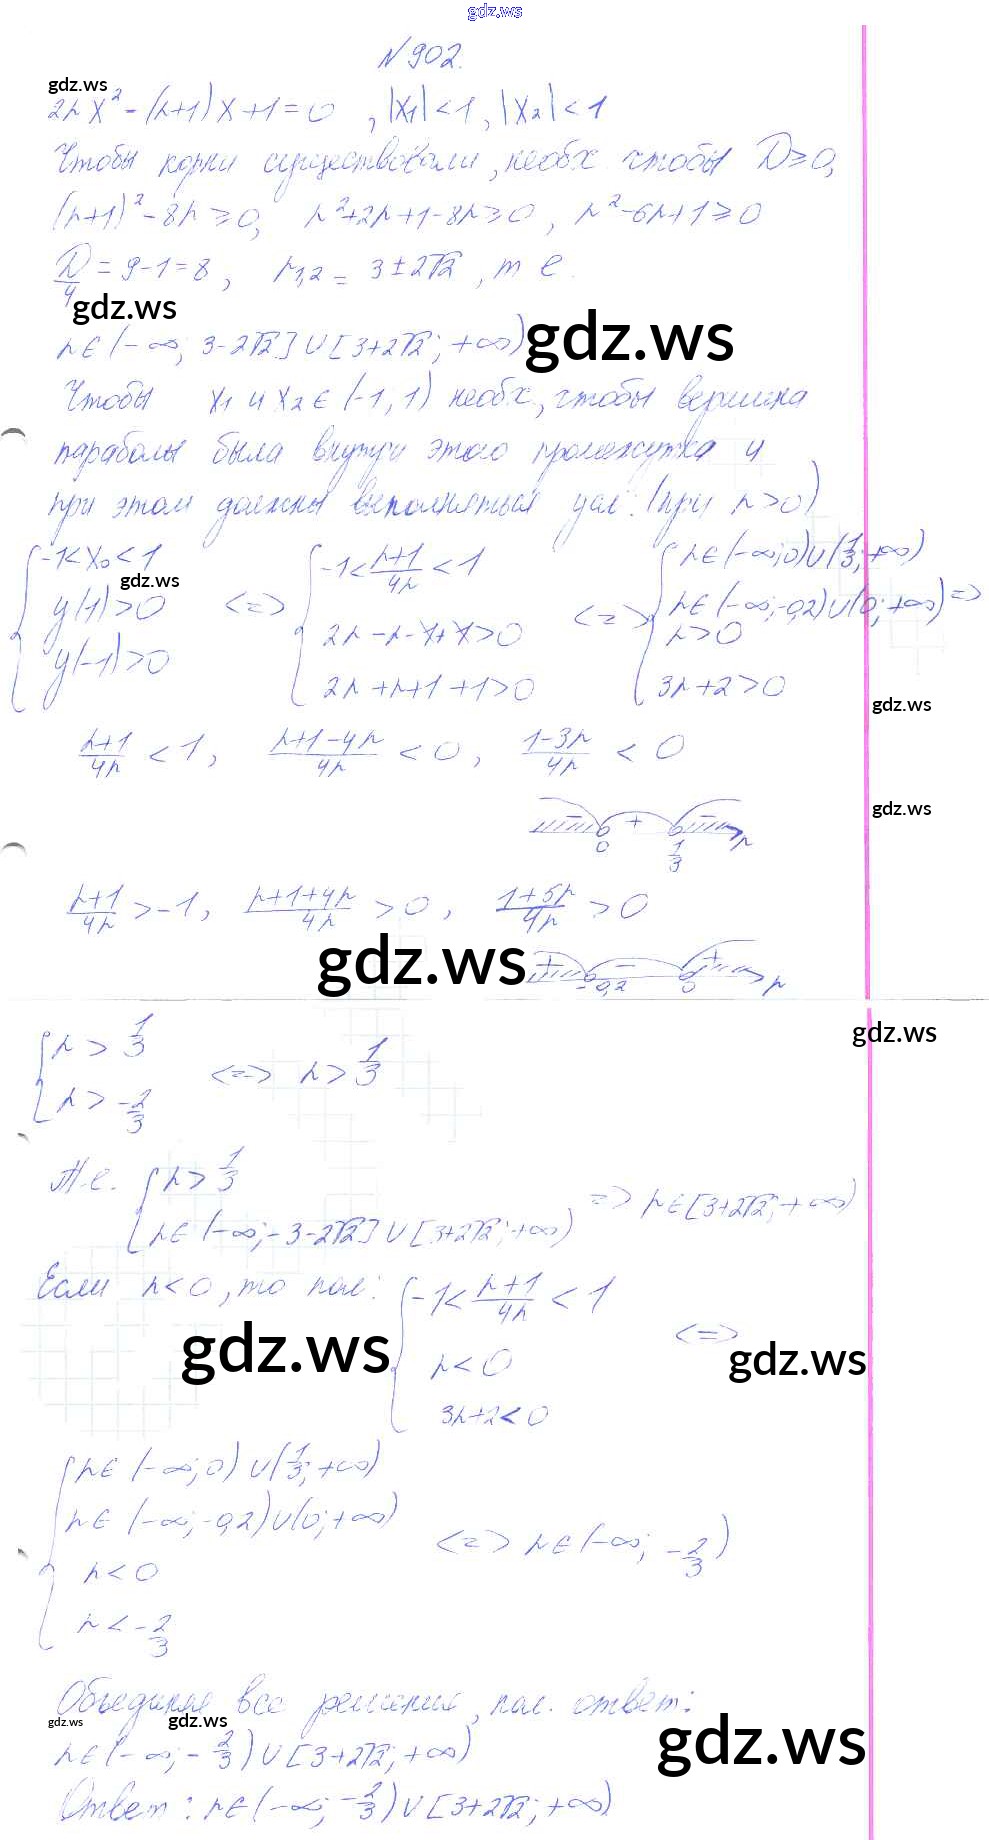 gdz.ws
N 902.
gdz.ws
2rx² - (r+1)x + 1 = 0 , |x₁| < 1 , |x₂| < 1
Чтобы корни существовали, необх. чтобы D ≥ 0,
(r+1)² - 8r ≥ 0, r² + 2r + 1 - 8r ≥ 0 , r² - 6r + 1 ≥ 0
D/4 = 9 - 1 = 8 , r₁,₂ = 3 ± 2√2 , т е.
gdz.ws
r ∈ (-∞; 3 - 2√2] ∪ [3 + 2√2; +∞)
gdz.ws
Чтобы x₁ и x₂ ∈ (-1, 1) необх., чтобы вершина
параболы была внутри этого промежутка и
при этом должны выполняться усл: (при r > 0)
{ -1 < x₀ < 1
y(1) > 0
y(-1) > 0
<=> { -1 < (r+1)/4r < 1
2r - r - 1 + 1 > 0
2r + r + 1 + 1 > 0
<=> { r ∈ (-∞; 0) ∪ (1/3; +∞)
r ∈ (-∞; -0,2) ∪ (0; +∞) =>
r > 0
3r + 2 > 0
gdz.ws
gdz.ws
(r+1)/4r < 1 , (r+1-4r)/4r < 0 , (1-3r)/4r < 0
gdz.ws
- + -
0 1/3 r
(r+1)/4r > -1 , (r+1+4r)/4r > 0 , (1+5r)/4r > 0
gdz.ws
+ - +
-0,2 0 r
gdz.ws
{ r > 1/3
r > -2/3
<=> r > 1/3
Т.е. { r > 1/3
r ∈ (-∞; -3 - 2√2] ∪ [3 + 2√2; +∞)
=> r ∈ [3 + 2√2; +∞)
Если r < 0 , то пол: { -1 < (r+1)/4r < 1
r < 0
3r + 2 < 0
<=>
gdz.ws
gdz.ws
{ r ∈ (-∞; 0) ∪ (1/3; +∞)
r ∈ (-∞; -0,2) ∪ (0; +∞)
r < 0
r < -2/3
<=> r ∈ (-∞; -2/3)
Объединяя все решения, пол. ответ:
gdz.ws
gdz.ws
gdz.ws
r ∈ (-∞; -2/3) ∪ [3 + 2√2; +∞)
Ответ: r ∈ (-∞; -2/3) ∪ [3 + 2√2; +∞)